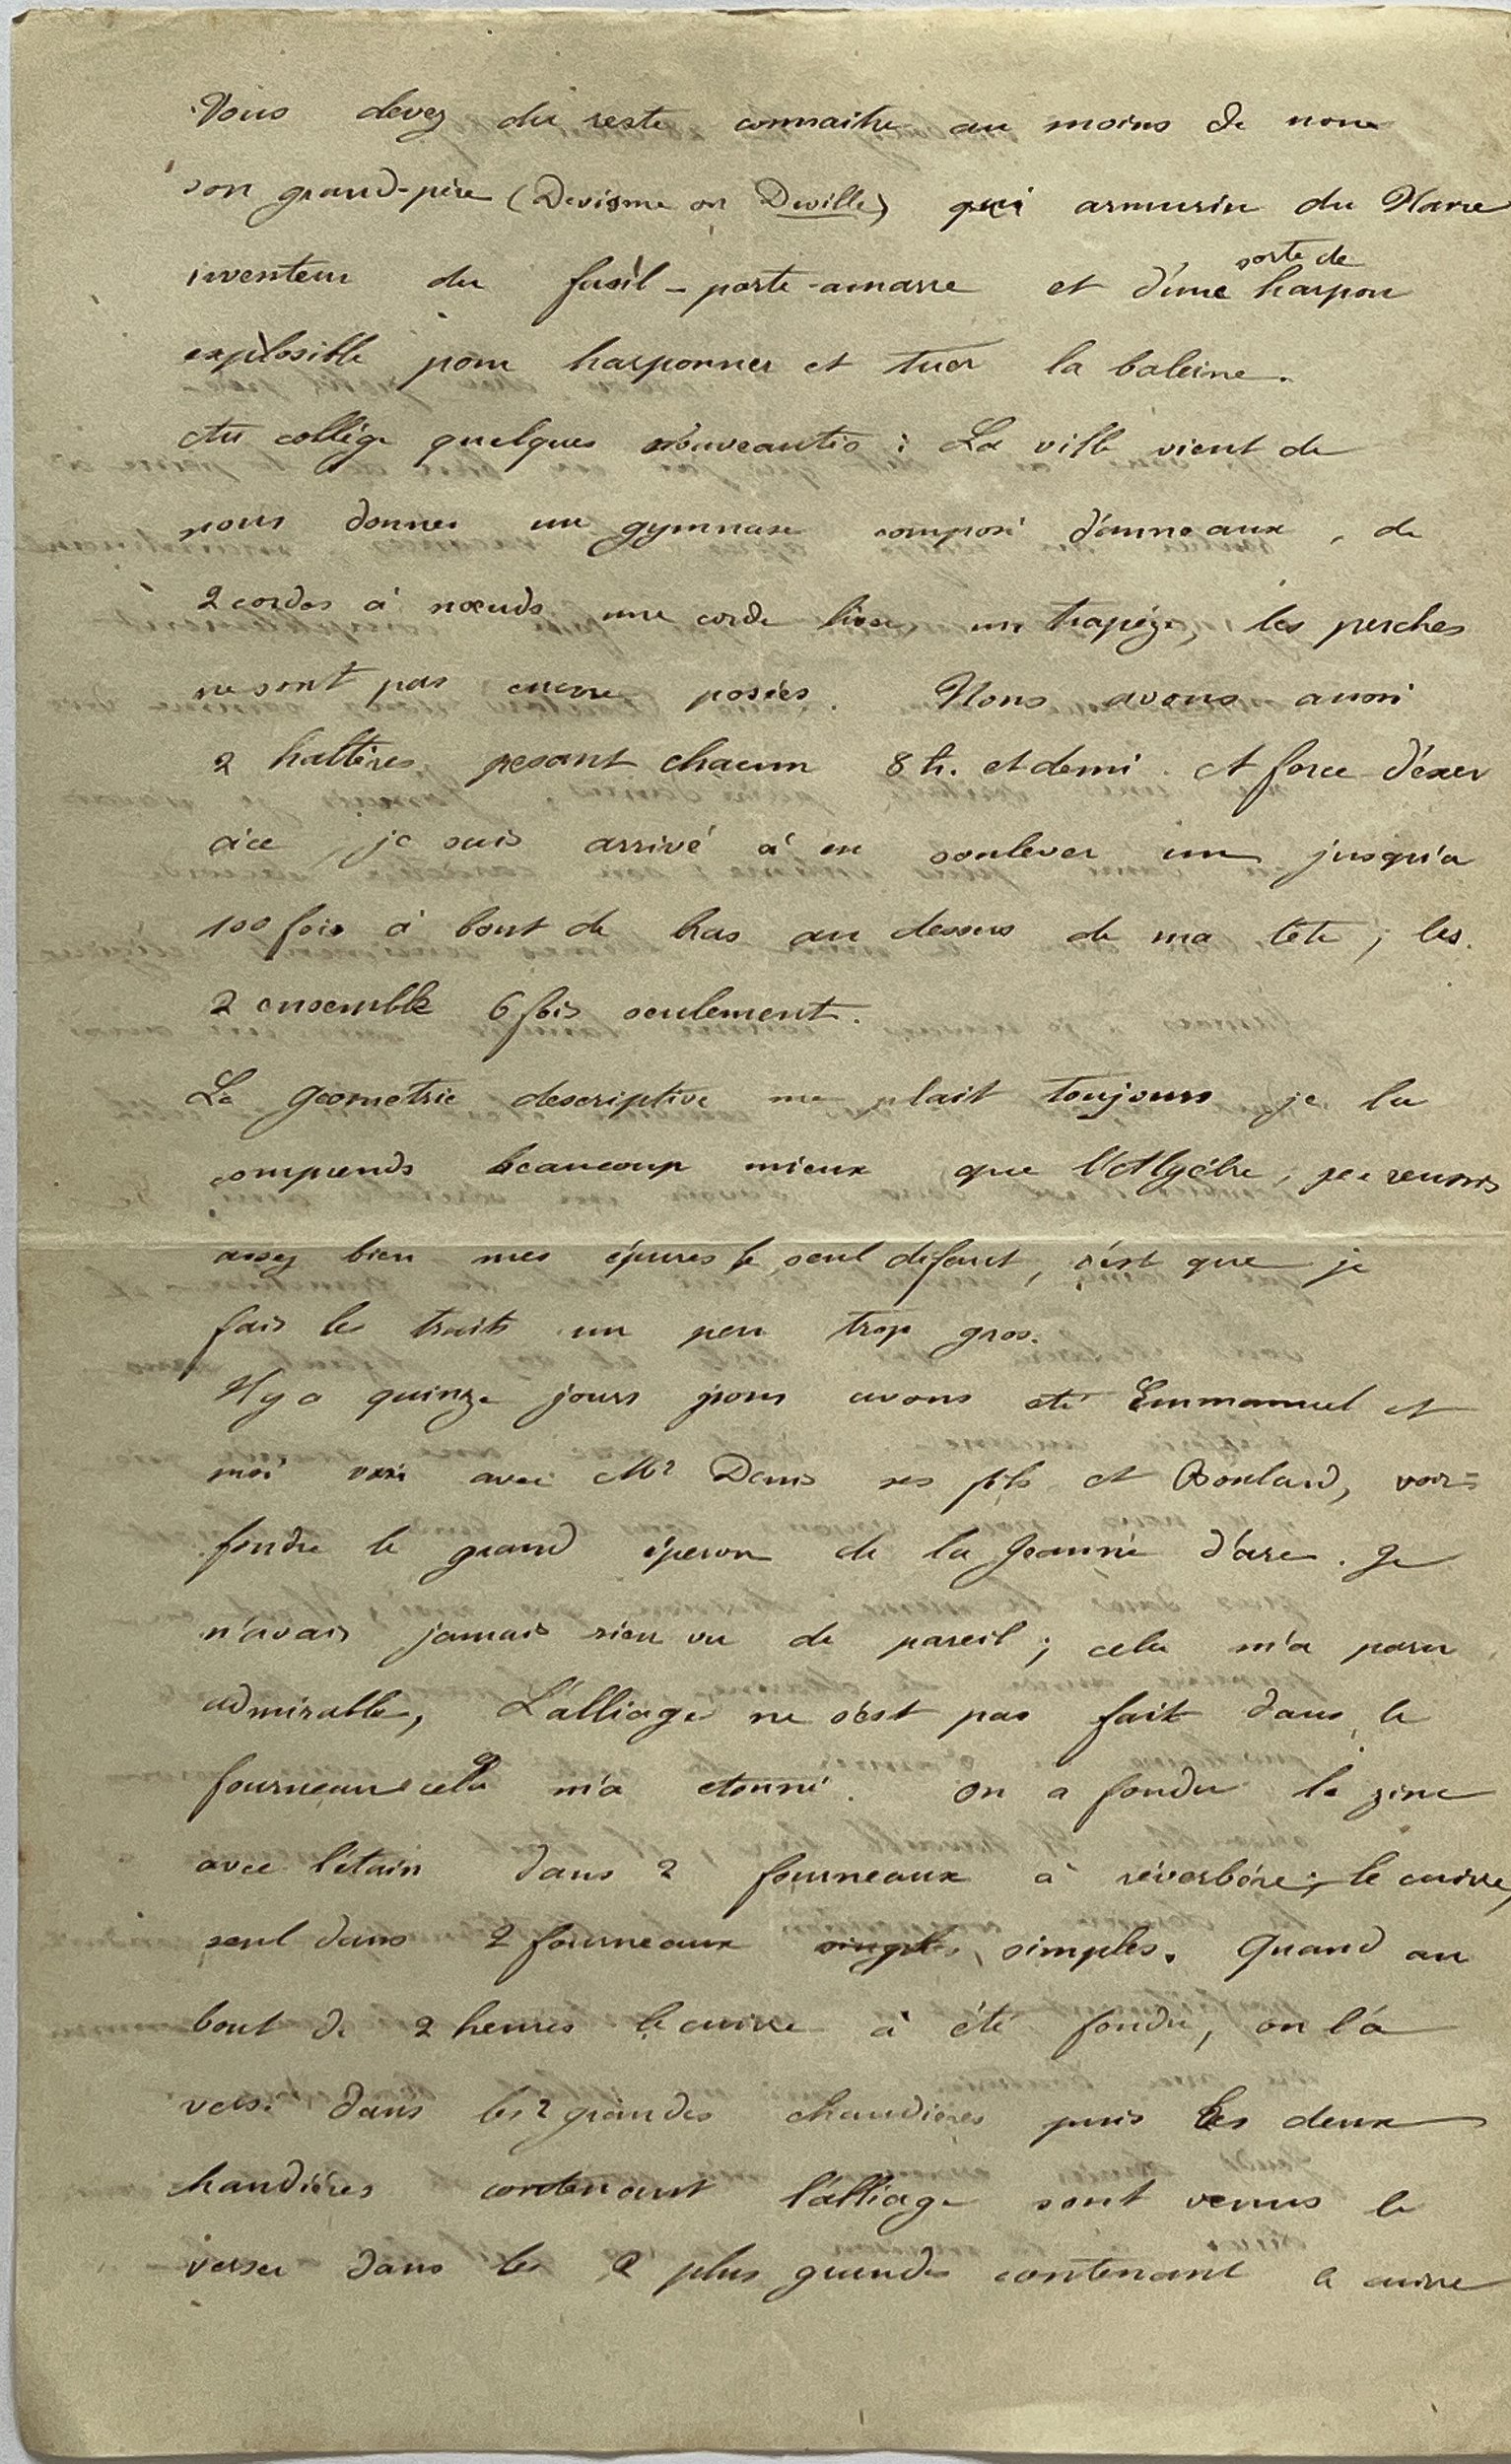 Vous devez du reste connaitre au moins de nom
son grand-père (Devisme ou Deville) qui armurier du Havre
inventeur du fusil-porte-amarre et d'une sorte de harpon
explosible pour harponner et tuer la baleine.
Au collége quelques nouveautés : La ville vient de
nous donner un gymnase composé d'anneaux, de
2 cordes à nœuds une corde lisse, un trapéze, les perches
ne sont pas encore posées. Nous avons aussi
2 haltères pesant chacun 8 k. et demi. A force d'exer
cice, je suis arrivé à en soulever un jusqu'a
100 fois à bout de bras au dessus de ma tête ; les
2 ensemble 6 fois seulement.
La géometrie descriptive me plait toujours je la
comprends beaucoup mieux que l'Algébre, je reussis
assez bien mes épures le seul defaut, c'est que je
fais les traits un peu trop gros.
Il y a quinze jours nous avons été Emmanuel et
moi avec Mr Denis ses fils et Boulard, voir
fondre le grand éperon de la Jeanne d'arc. Je
n'avais jamais rien vu de pareil ; cela m'a paru
admirable, L'alliage ne s'est pas fait dans le
fourneau cela m'a etonné. On a fondu le zinc
avec l'étain dans 2 fourneaux à réverbére ; le cuivre,
seul dans 2 fourneaux simples. Quand au
bout de 2 heures le cuivre à été fondu, on l'a
versé dans les 2 grandes chaudiéres puis les deux
chaudiéres contenant l'alliage sont venus le
verser dans les 2 plus grandes contenant le cuivre